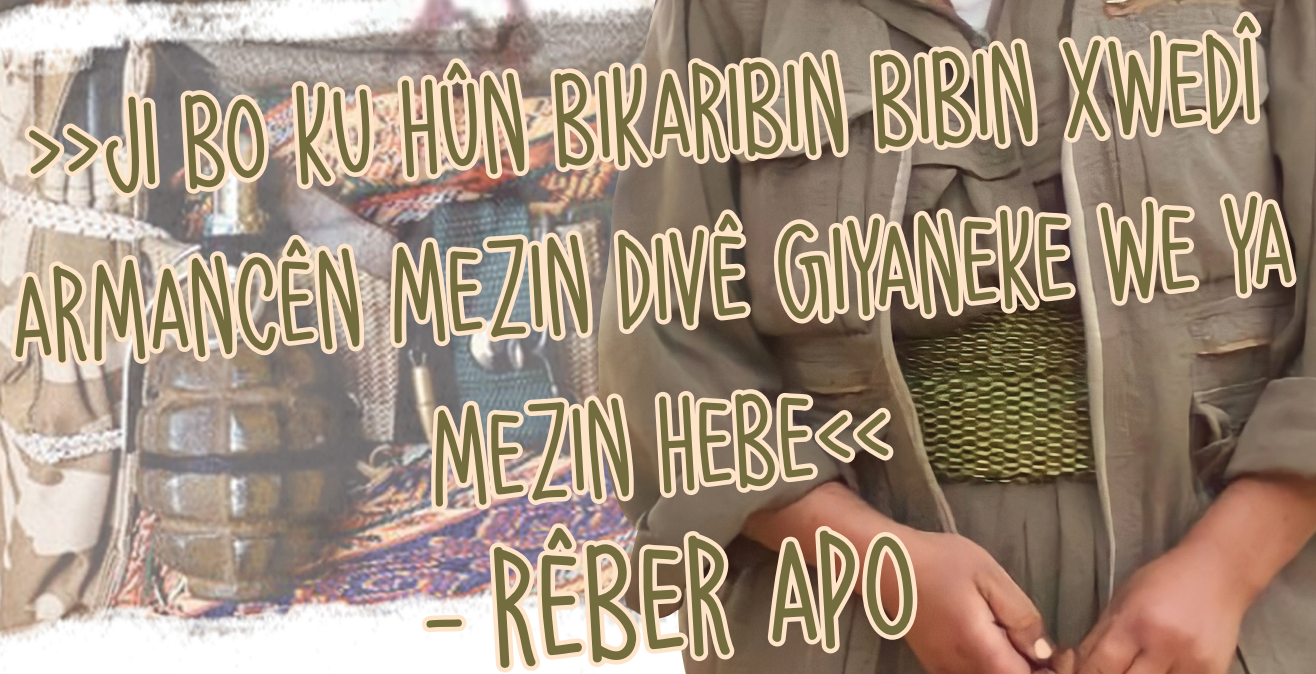 >>JI BO KU HÛN BIKARIBIN BIBIN XWEDÎ
ARMANCÊN MEZIN DIVÊ GIYANEKE WE YA
MEZIN HEBE<<
- RÊBER APO